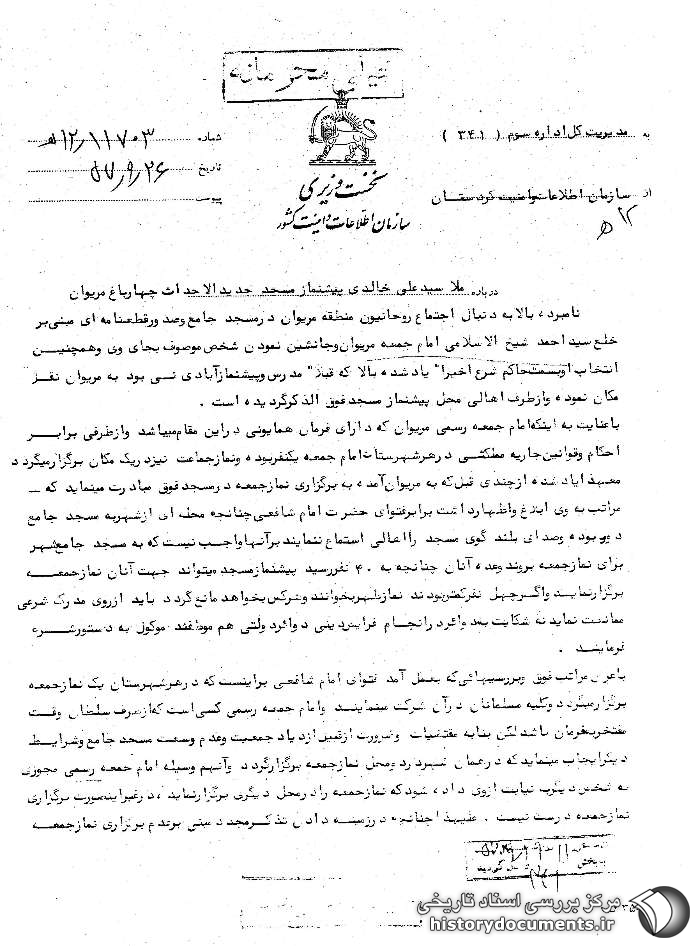 خیلی محرمانه
به مدیریت کل اداره سوم ( ۳۴۱ )
شماره ۱۲/۱۱۷۰۳ ه
تاریخ ۵۷/۹/۲۶
پیوست
نخست وزیری
سازمان اطلاعات و امنیت کشور
از سازمان اطلاعات و امنیت کردستان
۱۲ ه
درباره ملا سید علی خالدی پیشنماز مسجد جدید الاحداث چهارباغ مریوان
نامبرده بالا به دنبال اجتماع روحانیون منطقه مریوان در مسجد جامع و صدور قطعنامه ای مبنی بر
خلع سید احمد شیخ الاسلامی امام جمعه مریوان و جانشین نمودن شخص موصوف بجای وی و همچنین
انتخاب او بسمت حاکم شرع اخیرا" یاد شده بالا که قبلا" مدرس و پیشنماز آبادی نی بود به مریوان نقل
مکان نموده و از طرف اهالی محل پیشنماز مسجد فوق الذکر گردیده است .
با عنایت به اینکه امام جمعه رسمی مریوان که دارای فرمان همایونی در این مقام میباشد و از طرفی برابر
احکام و قوانین جاریه مملکتی در هر شهرستان امام جمعه یکنفر بوده و نماز جماعت نیز در یک مکان برگزار میگردد
معهذا یاد شده از چندی قبل که به مریوان آمده به برگزاری نماز جمعه در مسجد فوق مبادرت مینماید که
مراتب به وی ابلاغ و اظهار داشت برابر فتوای حضرت امام شافعی چنانچه محله ای از شهر به مسجد جامع
دور بوده و صدای بلند گوی مسجد را اهالی استماع ننمایند بر آنها واجب نیست که به مسجد جامع شهر
برای نماز جمعه بروند و عده آنان چنانچه به ۴۰ نفر رسید پیشنماز مسجد میتواند جهت آنان نماز جمعه
برگزار نماید و اگر چهل نفر کمتر بودند نماز ظهر بخوانند و هر کس بخواهد مانع گردد باید از روی مدرک شرعی
ممانعت نماید نه شکایت بعد وافرد را انجام فرایض دینی و افراد دولتی هم موظفند موکول به دستور شرع
فرمایند .
با عرض مراتب فوق و بررسیهائی که بعمل آمد فتوای امام شافعی براینست که در هر شهرستان یک نماز جمعه
برگزار میگردد و کلیه مسلمانان در آن شرکت مینمایند و امام جمعه رسمی کسی است که از طرف سلطان وقت
مفتخر بفرمان باشد لکن بنا به مقتضیات و ضرورت از قبیل ازدیاد جمعیت و عدم وسعت مسجد جامع و شرایط
دیگر ایجاب مینماید که در همان شهر در دو محل نماز جمعه برگزار گردد و آنهم وسیله امام جمعه رسمی مجوزی
به شخص دیگر نیابت از وی داده شود که نماز جمعه را در محل دیگری برگزار نماید ، در غیر اینصورت برگزاری
نماز جمعه درست نیست . علیهذا چنانچه در زمینه دادن تذکر مجدد مبنی بر عدم برگزاری نماز جمعه
مرکز بررسی اسناد تاریخی
historydocuments.ir